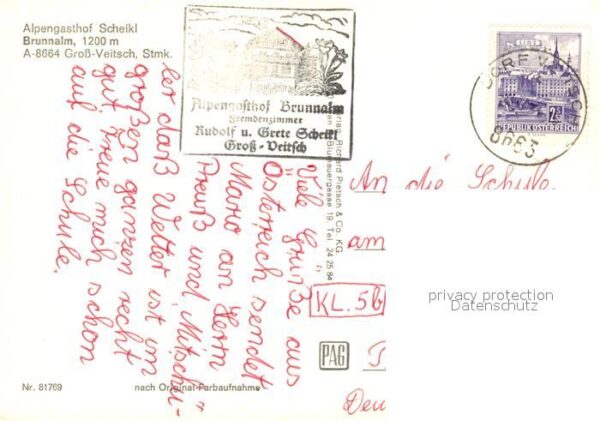 Alpengasthof Scheikl
Brunnalm, 1200 m
A-8664 Groß-Veitsch, Stmk.
Alpengasthof Brunnalm
Fremdenzimmer
Rudolf u. Grete Scheikl
Groß - Veitsch
LINZ
2.50
REPUBLIK ÖSTERREICH
8663
Verlag Richard Pietsch & Co. KG
Brunauergasse 19, Tel. 24 25 84
Viele Grüße aus
Österreich sendet
Mario an Herrn
Preuß und Mitschü-
ler daß Wetter ist im
großen ganzen recht
gut, freue mich schon
auf die Schule.
An die Schule
am
KL. 5b
PAG
privacy protection
Datenschutz
Nr. 81769
nach Original-Farbaufnahme